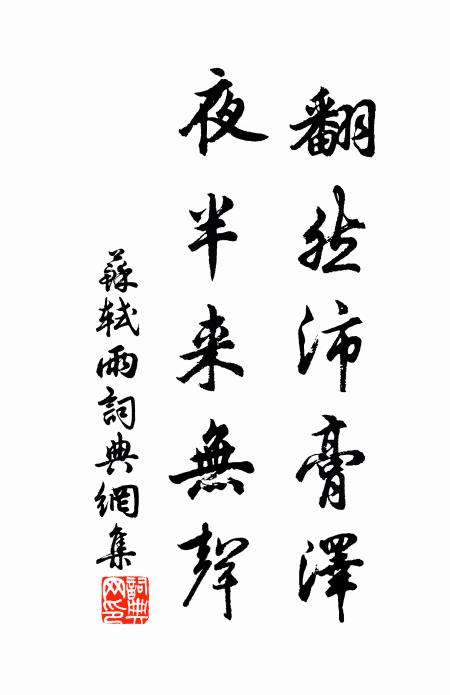 翻然沛膏澤
夜半来無聲
蘇軾雨詞典網集
詞典网印